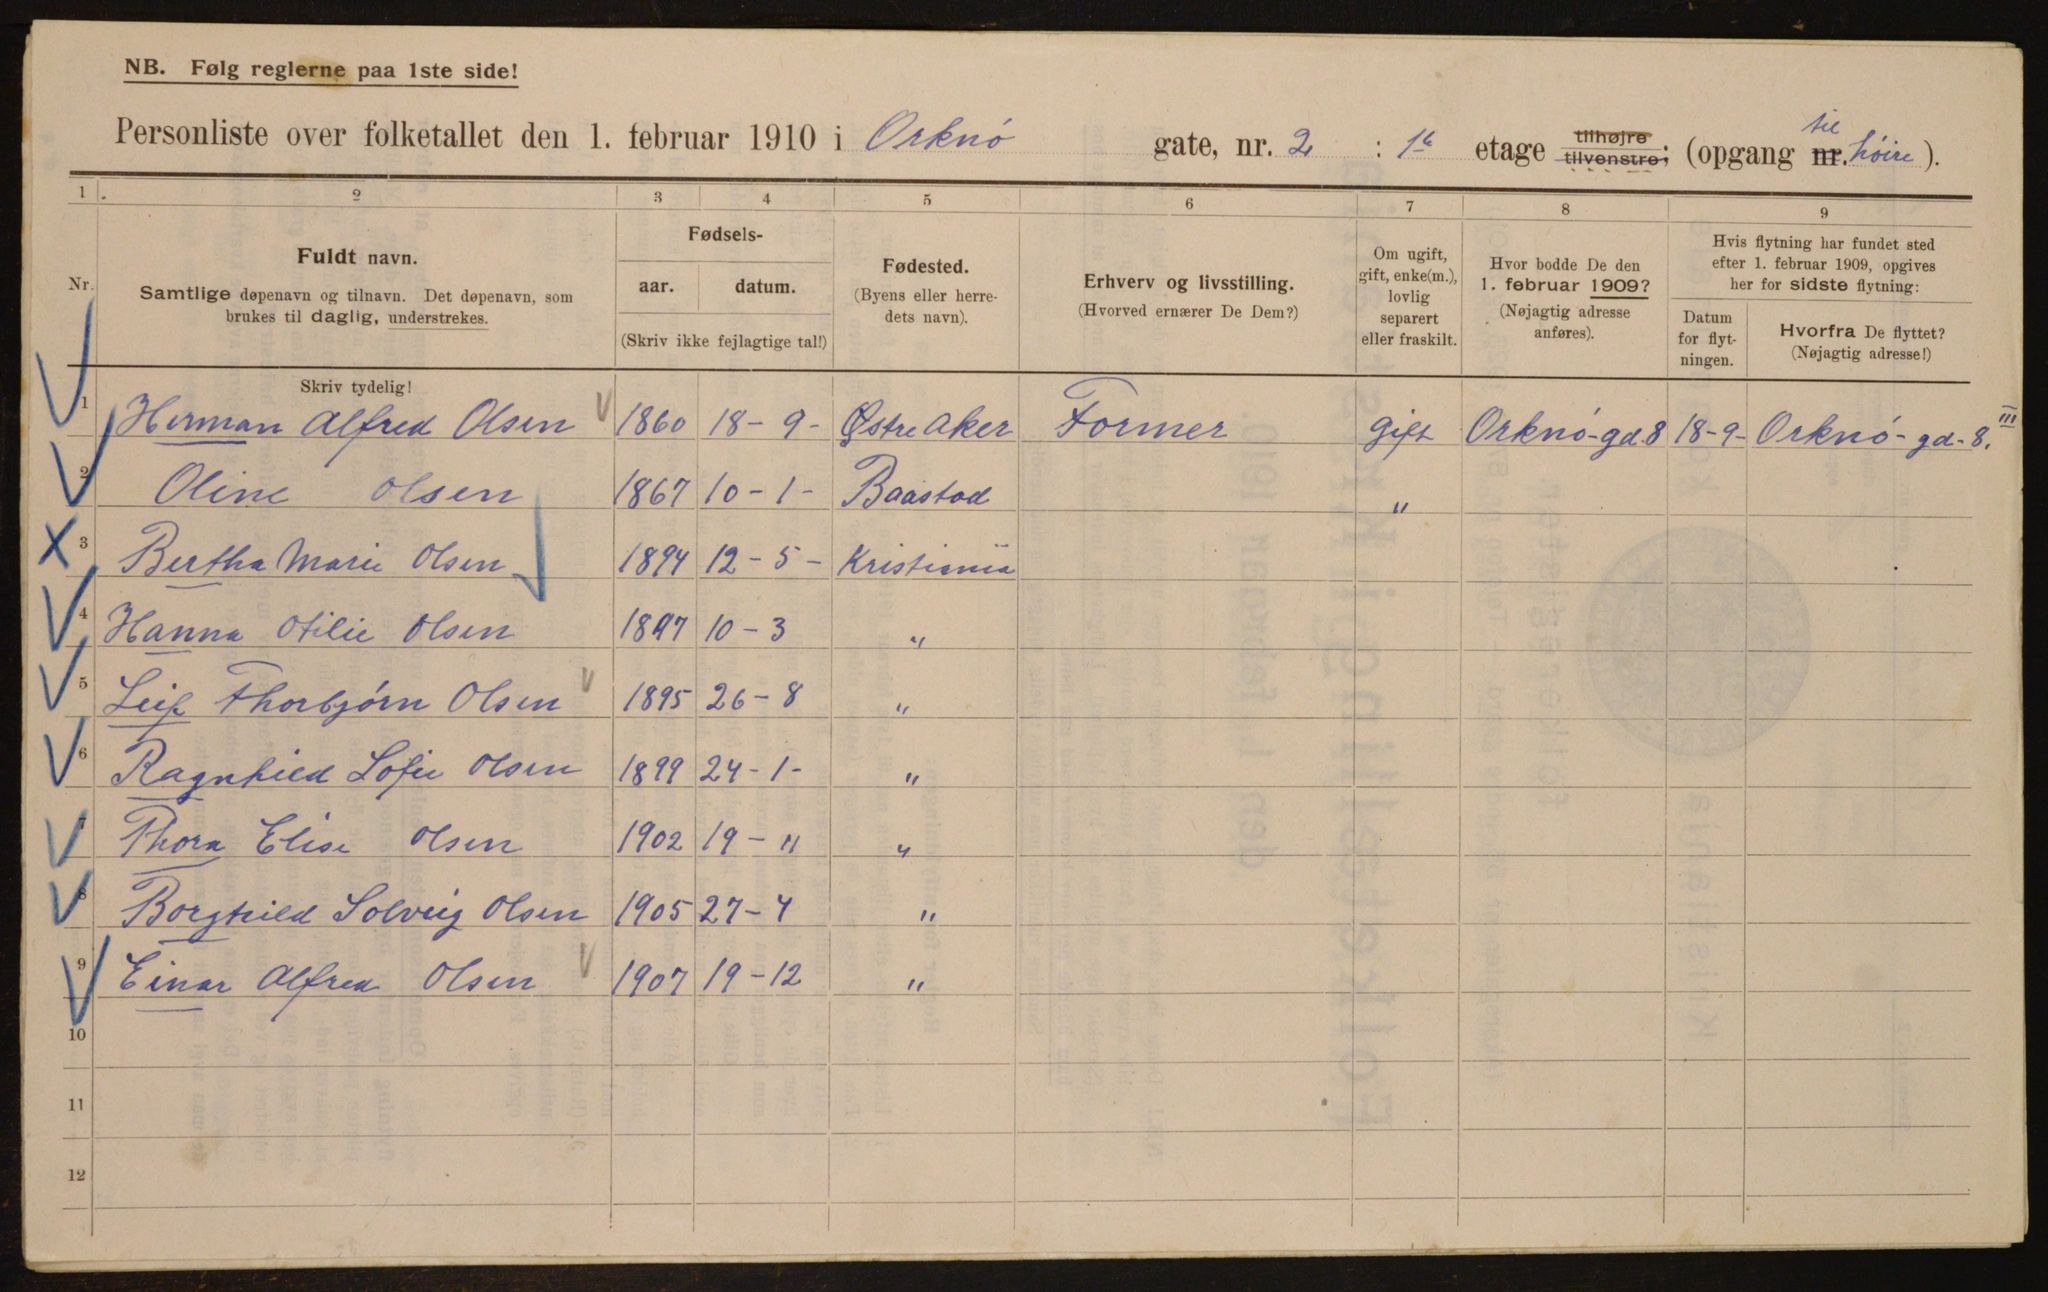 NB. Følg reglerne paa 1ste side!
Personliste over folketallet den 1. februar 1910 i Orknø gate, nr. 2 : 1ste etage tilhøjre tilvenstre; (opgang nr. til høire ).
1 2 3 4 5 6 7 8 9
Nr. Fuldt navn. Samtlige døpenavn og tilnavn. Det døpenavn, som brukes til daglig, understrekes.
Fødsels-
aar. datum.
(Skriv ikke fejlagtige tal!)
Fødested.
(Byens eller herre-
dets navn).
Erhverv og livsstilling.
(Hvorved ernærer De Dem?)
Om ugift,
gift, enke(m.),
lovlig
separert
eller fraskilt.
Hvor bodde De den
1. februar 1909?
(Nøjagtig adresse
anføres).
Hvis flytning har fundet sted
efter 1. februar 1909, opgives
her for sidste flytning:
Datum
for flyt-
ningen.
Hvorfra De flyttet?
(Nøjagtig adresse!)
Skriv tydelig!
1 Herman Alfred Olsen 1860 18-9- Østre Aker Former gift Orknø-gd 8 18-9- Orknø-gd-8. III
2 Oline Olsen 1867 10-1- Baastad "
3 Bertha Marie Olsen 1894 12-5- Kristiania
4 Hanna Otilie Olsen 1897 10-3 "
5 Leif Thorbjørn Olsen 1895 26-8 "
6 Ragnhild Sofie Olsen 1899 24-1- "
7 Thora Elise Olsen 1902 19-11 "
8 Borghild Solveig Olsen 1905 27-4 "
9 Einar Alfred Olsen 1907 19-12 "
10
11
12